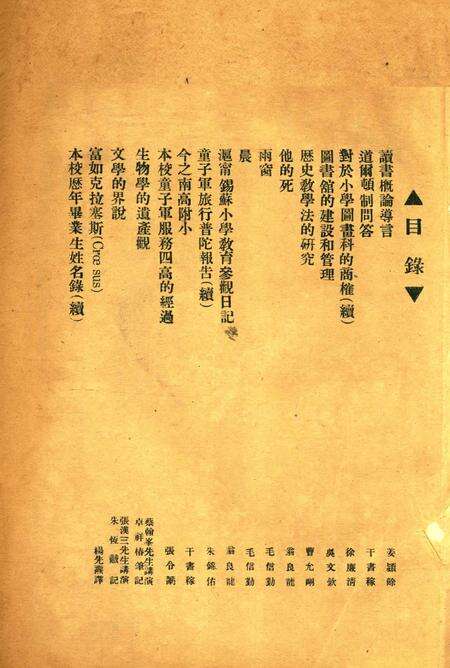 ▲目錄▼
讀書概論導言
道爾頓制問答
對於小學圖畫科的商榷(續)
圖書館的建設和管理
歷史教學法的研究
他的死
雨窗
晨
滬甯錫蘇小學教育參觀日記
童子軍旅行普陀報告(續)
今之南高附小
本校童子軍服務四高的經過
生物學的遺產觀
文學的界說
富如克拉塞斯(Crœsus)
本校歷年畢業生姓名錄(續)
姜穎餘
干書稼
徐廉清
吳文欽
曹允
翁良能
毛信勤
毛信勤
翁良能
朱錦佑
干書稼
張令
蔡翰峯先生講演
卓祥椿筆記
張漢三先生講演
朱恆 記
楊先 譯